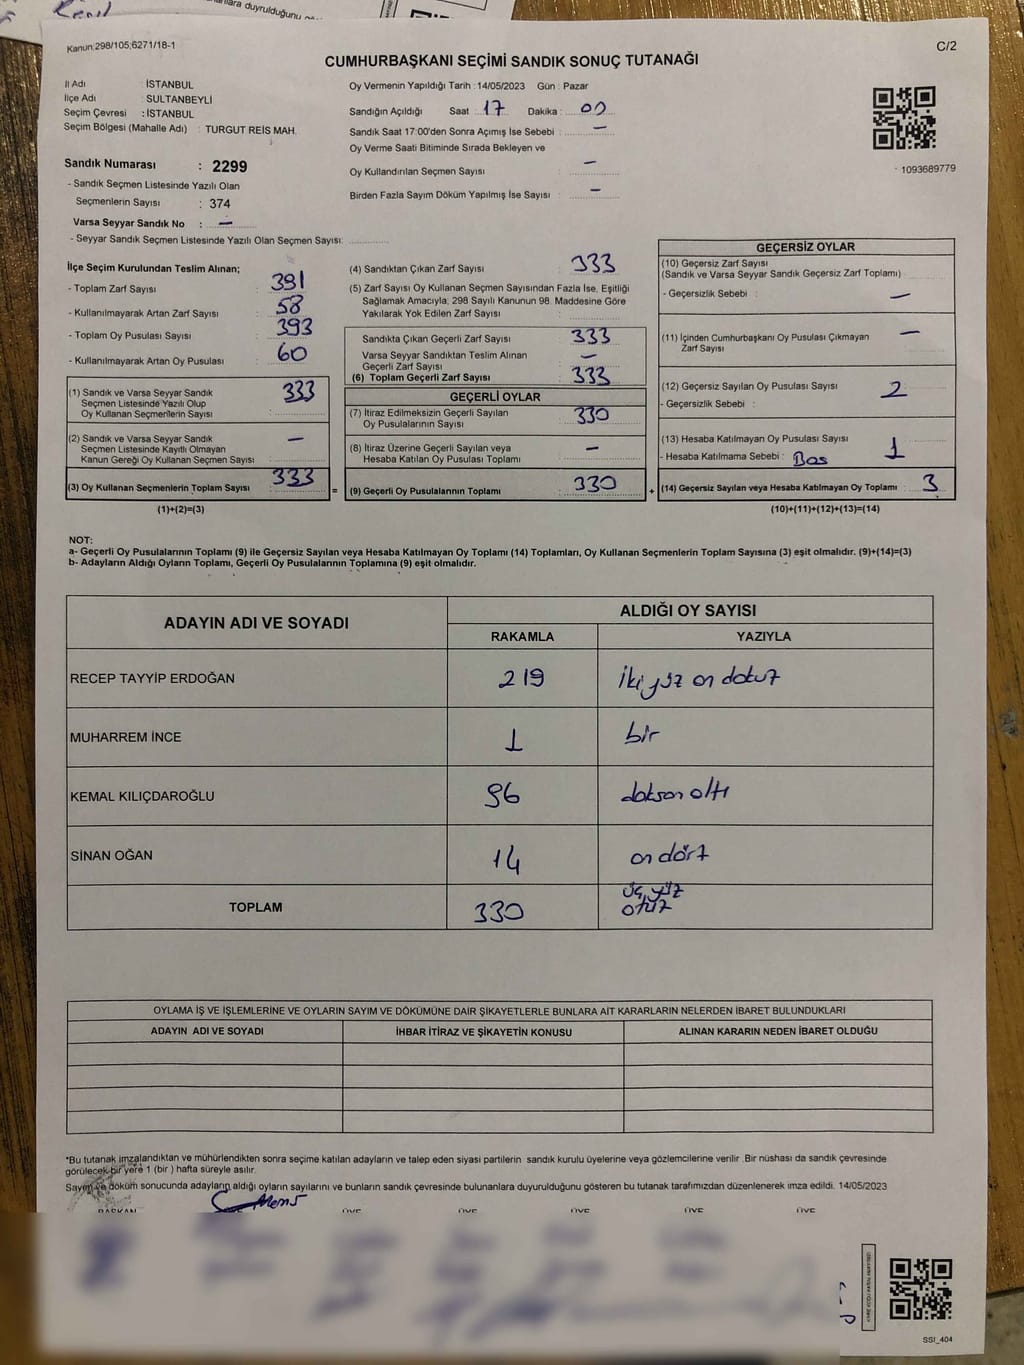 Kanun:298/105;6271/18-1
C/2
CUMHURBAŞKANI SEÇİMİ SANDIK SONUÇ TUTANAĞI
İl Adı İSTANBUL
İlçe Adı : SULTANBEYLİ
Seçim Çevresi : İSTANBUL
Seçim Bölgesi (Mahalle Adı) : TURGUT REİS MAH.
Sandık Numarası : 2299
- Sandık Seçmen Listesinde Yazılı Olan
Seçmenlerin Sayısı : 374
Varsa Seyyar Sandık No : —
- Seyyar Sandık Seçmen Listesinde Yazılı Olan Seçmen Sayısı:
Oy Vermenin Yapıldığı Tarih : 14/05/2023 Gün : Pazar
Sandığın Açıldığı Saat 17 Dakika : 00
Sandık Saat 17:00'den Sonra Açımış İse Sebebi : —
Oy Verme Saati Bitiminde Sırada Bekleyen ve
Oy Kullandırılan Seçmen Sayısı : —
Birden Fazla Sayım Döküm Yapılmış İse Sayısı : —
1093689779
İlçe Seçim Kurulundan Teslim Alınan;
- Toplam Zarf Sayısı : 391
- Kullanılmayarak Artan Zarf Sayısı : 58
- Toplam Oy Pusulası Sayısı : 393
- Kullanılmayarak Artan Oy Pusulası : 60
(1) Sandık ve Varsa Seyyar Sandık 333
Seçmen Listesinde Yazılı Olup
Oy Kullanan Seçmenlerin Sayısı :
(2) Sandık ve Varsa Seyyar Sandık —
Seçmen Listesinde Kayıtlı Olmayan
Kanun Gereği Oy Kullanan Seçmen Sayısı :
(3) Oy Kullanan Seçmenlerin Toplam Sayısı 333 =
(1)+(2)=(3)
(4) Sandıktan Çıkan Zarf Sayısı : 333
(5) Zarf Sayısı Oy Kullanan Seçmen Sayısından Fazla İse, Eşitliği
Sağlamak Amacıyla; 298 Sayılı Kanunun 98. Maddesine Göre
Yakılarak Yok Edilen Zarf Sayısı :
Sandıkta Çıkan Geçerli Zarf Sayısı : 333
Varsa Seyyar Sandıktan Teslim Alınan
Geçerli Zarf Sayısı : —
(6) Toplam Geçerli Zarf Sayısı : 333
GEÇERLİ OYLAR
(7) İtiraz Edilmeksizin Geçerli Sayılan
Oy Pusulalarının Sayısı : 330
(8) İtiraz Üzerine Geçerli Sayılan veya
Hesaba Katılan Oy Pusulası Toplamı : —
(9) Geçerli Oy Pusulalarının Toplamı : 330 +
GEÇERSİZ OYLAR
(10) Geçersiz Zarf Sayısı
(Sandık ve Varsa Seyyar Sandık Geçersiz Zarf Toplamı)
- Geçersizlik Sebebi : —
(11) İçinden Cumhurbaşkanı Oy Pusulası Çıkmayan
Zarf Sayısı —
(12) Geçersiz Sayılan Oy Pusulası Sayısı 2
- Geçersizlik Sebebi :
(13) Hesaba Katılmayan Oy Pusulası Sayısı 1
- Hesaba Katılmama Sebebi : Boş
(14) Geçersiz Sayılan veya Hesaba Katılmayan Oy Toplamı : 3
(10)+(11)+(12)+(13)=(14)
NOT:
a- Geçerli Oy Pusulalarının Toplamı (9) ile Geçersiz Sayılan veya Hesaba Katılmayan Oy Toplamı (14) Toplamları, Oy Kullanan Seçmenlerin Toplam Sayısına (3) eşit olmalıdır. (9)+(14)=(3)
b- Adayların Aldığı Oyların Toplamı, Geçerli Oy Pusulalarının Toplamına (9) eşit olmalıdır.
ADAYIN ADI VE SOYADI
ALDIĞI OY SAYISI
RAKAMLA YAZIYLA
RECEP TAYYİP ERDOĞAN 219 iki yüz on dokuz
MUHARREM İNCE 1 bir
KEMAL KILIÇDAROĞLU 96 doksan altı
SİNAN OĞAN 14 on dört
TOPLAM 330 üç yüz
otuz
OYLAMA İŞ VE İŞLEMLERİNE VE OYLARIN SAYIM VE DÖKÜMÜNE DAİR ŞİKAYETLERLE BUNLARA AİT KARARLARIN NELERDEN İBARET BULUNDUKLARI
ADAYIN ADI VE SOYADI İHBAR İTİRAZ VE ŞİKAYETİN KONUSU ALINAN KARARIN NEDEN İBARET OLDUĞU
*Bu tutanak imzalandıktan ve mühürlendikten sonra seçime katılan adayların ve talep eden siyasi partilerin sandık kurulu üyelerine veya gözlemcilerine verilir .Bir nüshası da sandık çevresinde
görülecek bir yere 1 (bir ) hafta süreyle asılır.
Sayım ve döküm sonucunda adayların aldığı oyların sayılarını ve bunların sandık çevresinde bulunanlara duyurulduğunu gösteren bu tutanak tarafımızdan düzenlenerek imza edildi. 14/05/2023
BAŞKAN ÜYE ÜYE ÜYE ÜYE ÜYE
SSI_404